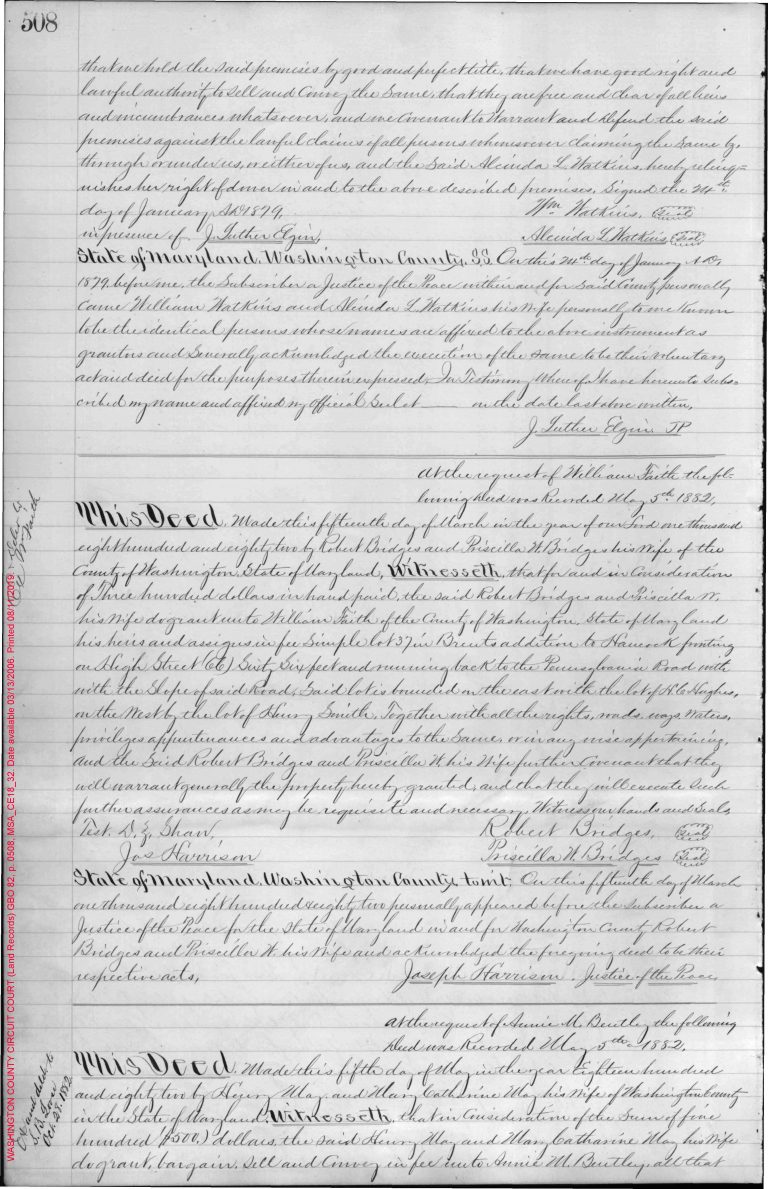 508
that we hold the said premises by good and perfect title, that we have good right and
lawful authority to sell and Convey the Same, that they are free and clear of all liens
and incumbrances whatsoever, and we Covenant to Warrant and Defend the said
premises against the lawful claims of all persons whomsoever claiming the Same by,
through or under us, or either of us, and the said Alcinda L. Watkins, hereby relinq=
uishes her right of dower in and to the above described premises. Signed the 24th
day of January A.D. 1879.
Wm Watkins. Seal
in presence of J. Luther Elgin,
Alcinda L Watkins Seal
State of Maryland, Washington County, S.S. On this 24th day of January A.D,
1879. before me, the Subscriber a Justice of the Peace within and for Said County personally
came William Watkins and Alcinda L. Watkins his Wife personally to me Known
to be the identical persons whose names are affixed to the above instrument as
grantors and Severally acknowledged the execution of the same to be their voluntary
act and deed for the purposes therein expressed, In Testimony Whereof I have hereunto Subs-
cribed my name and affixed my Official Seal at —— on the date last above written,
J. Luther Elgin. JP
At the request of William Faith the fol-
lowing deed was Recorded May 5th 1882.
This Deed, Made this fifteenth day of March in the year of our Lord one thousand
eight hundred and eighty two by Robert Bridges and Priscilla W. Bridges his Wife of the
County of Washington, State of Maryland, Witnesseth, that for and in Consideration
of Three hundred dollars in hand paid, the said Robert Bridges and Priscilla W.
his Wife do grant unto William Faith of the County of Washington, State of Maryland
his heirs and assigns in fee Simple lot 37 in Brents addition to Hancock fronting
on High Street (66) Sixty Six feet and running back to the Pennsylvania Road with
with the Slope of said Road, Said lot is bounded on the east with the lot of H. C. Hughes,
on the West by the lot of Henry Smith. Together with all the rights, roads, ways Waters,
privileges appurtenances and advantages to the Same, or in any wise appertaining,
And the Said Robert Bridges and Priscilla W. his Wife further Covenant that they
will warrant generally the property hereby granted, and that they will execute Such
further assurances as may be requisite and necessary. Witness our hands and Seals,
Test. Shaw,
Robert Bridges, Seal
Jos Harrison
Priscilla W. Bridges Seal
State of Maryland, Washington County, to wit; On this fifteenth day of March
one thousand eight hundred & eighty two personally appeared before the subscriber a
Justice of the Peace for the State of Maryland in and for Washington County Robert
Bridges and Priscilla W. his Wife and acknowledged the foregoing deed to be their
respective acts,
Joseph Harrison. Justice of the Peace,
At the request of Annie M. Bentley the following
Deed was Recorded May 5th 1882.
This Deed. Made this fifth day of May in the year Eighteen hundred
and eighty two by Henry May and Mary Catharine May his Wife of Washington County
in the State of Maryland, Witnesseth, that in Consideration of the Sum of five
hundred ($500.) dollars, the said Henry May and Mary Catharine May his Wife
do grant, bargain, Sell and Convey in fee unto Annie M. Bentley, all that
W Faith
Oct. 28. 1882
WASHINGTON COUNTY CIRCUIT COURT (Land Records) GBO 82, p. 0508, MSA_CE18_32. Date available 03/13/2006. Printed 08/11/2019.